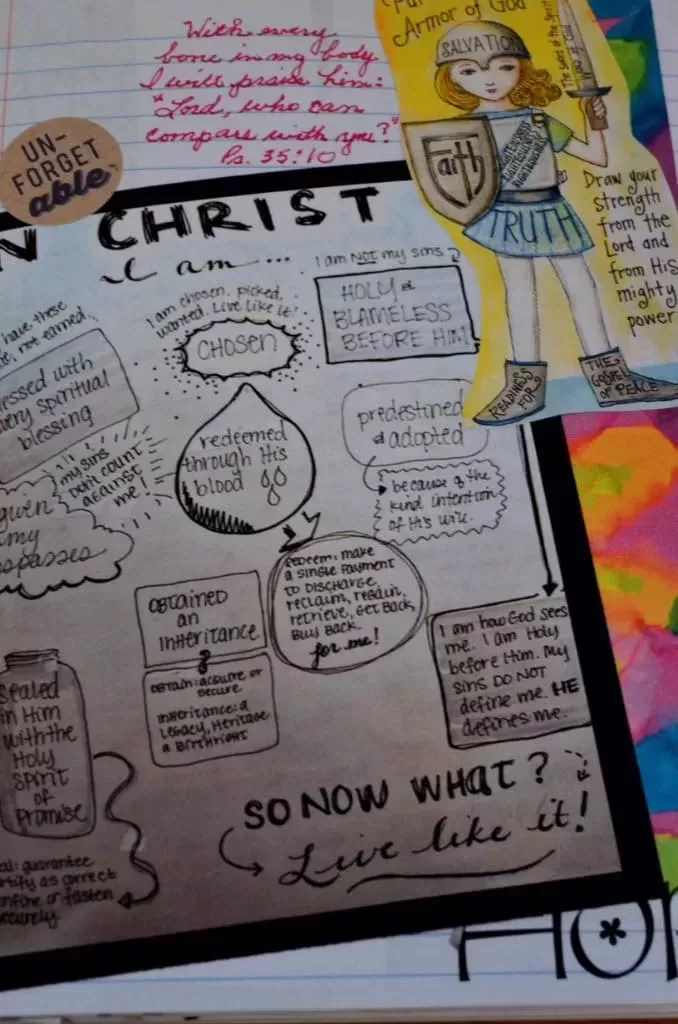 With every
bone in my body
I will praise him:
"Lord, who can
compare with you?"
Ps. 35:10
UN-
FORGET
able
Armor of God
SALVATION
The Sword of the Spirit
Faith
TRUTH
Draw your
strength
from the
Lord and
from His
mighty
power
READINESS
FOR
THE
GOSPEL
OF PEACE
N CHRIST
I am...
I am NOT my sins
HOLY &
BLAMELESS
BEFORE HIM
I am chosen, picked,
wanted. Live like it!
CHOSEN
have these
not earned
essed with
very spiritual
blessing
my sins
DON'T count
against
me!
given
my
spasses
redeemed
through His
blood
predestined
& adopted
because of the
kind intention
of His will.
Redeem: make
a single payment
to DISCHARGE,
reclaim, regain,
retrieve, Get Back,
Buy Back.
for me!
OBTAINED
an
INHERITANCE
OBTAIN: acquire or
secure
INHERITANCE: a
Legacy, Heritage
a BIRTHRIGHT
I am how God sees
me. I am Holy
before Him. My
sins DO NOT
define me. HE
defines me.
Sealed
in Him
with the
Holy
Spirit
of
Promise
al: guarantee
rtify as correct
onfine or fasten
ecurely
SO NOW WHAT?
Live like it!
HO